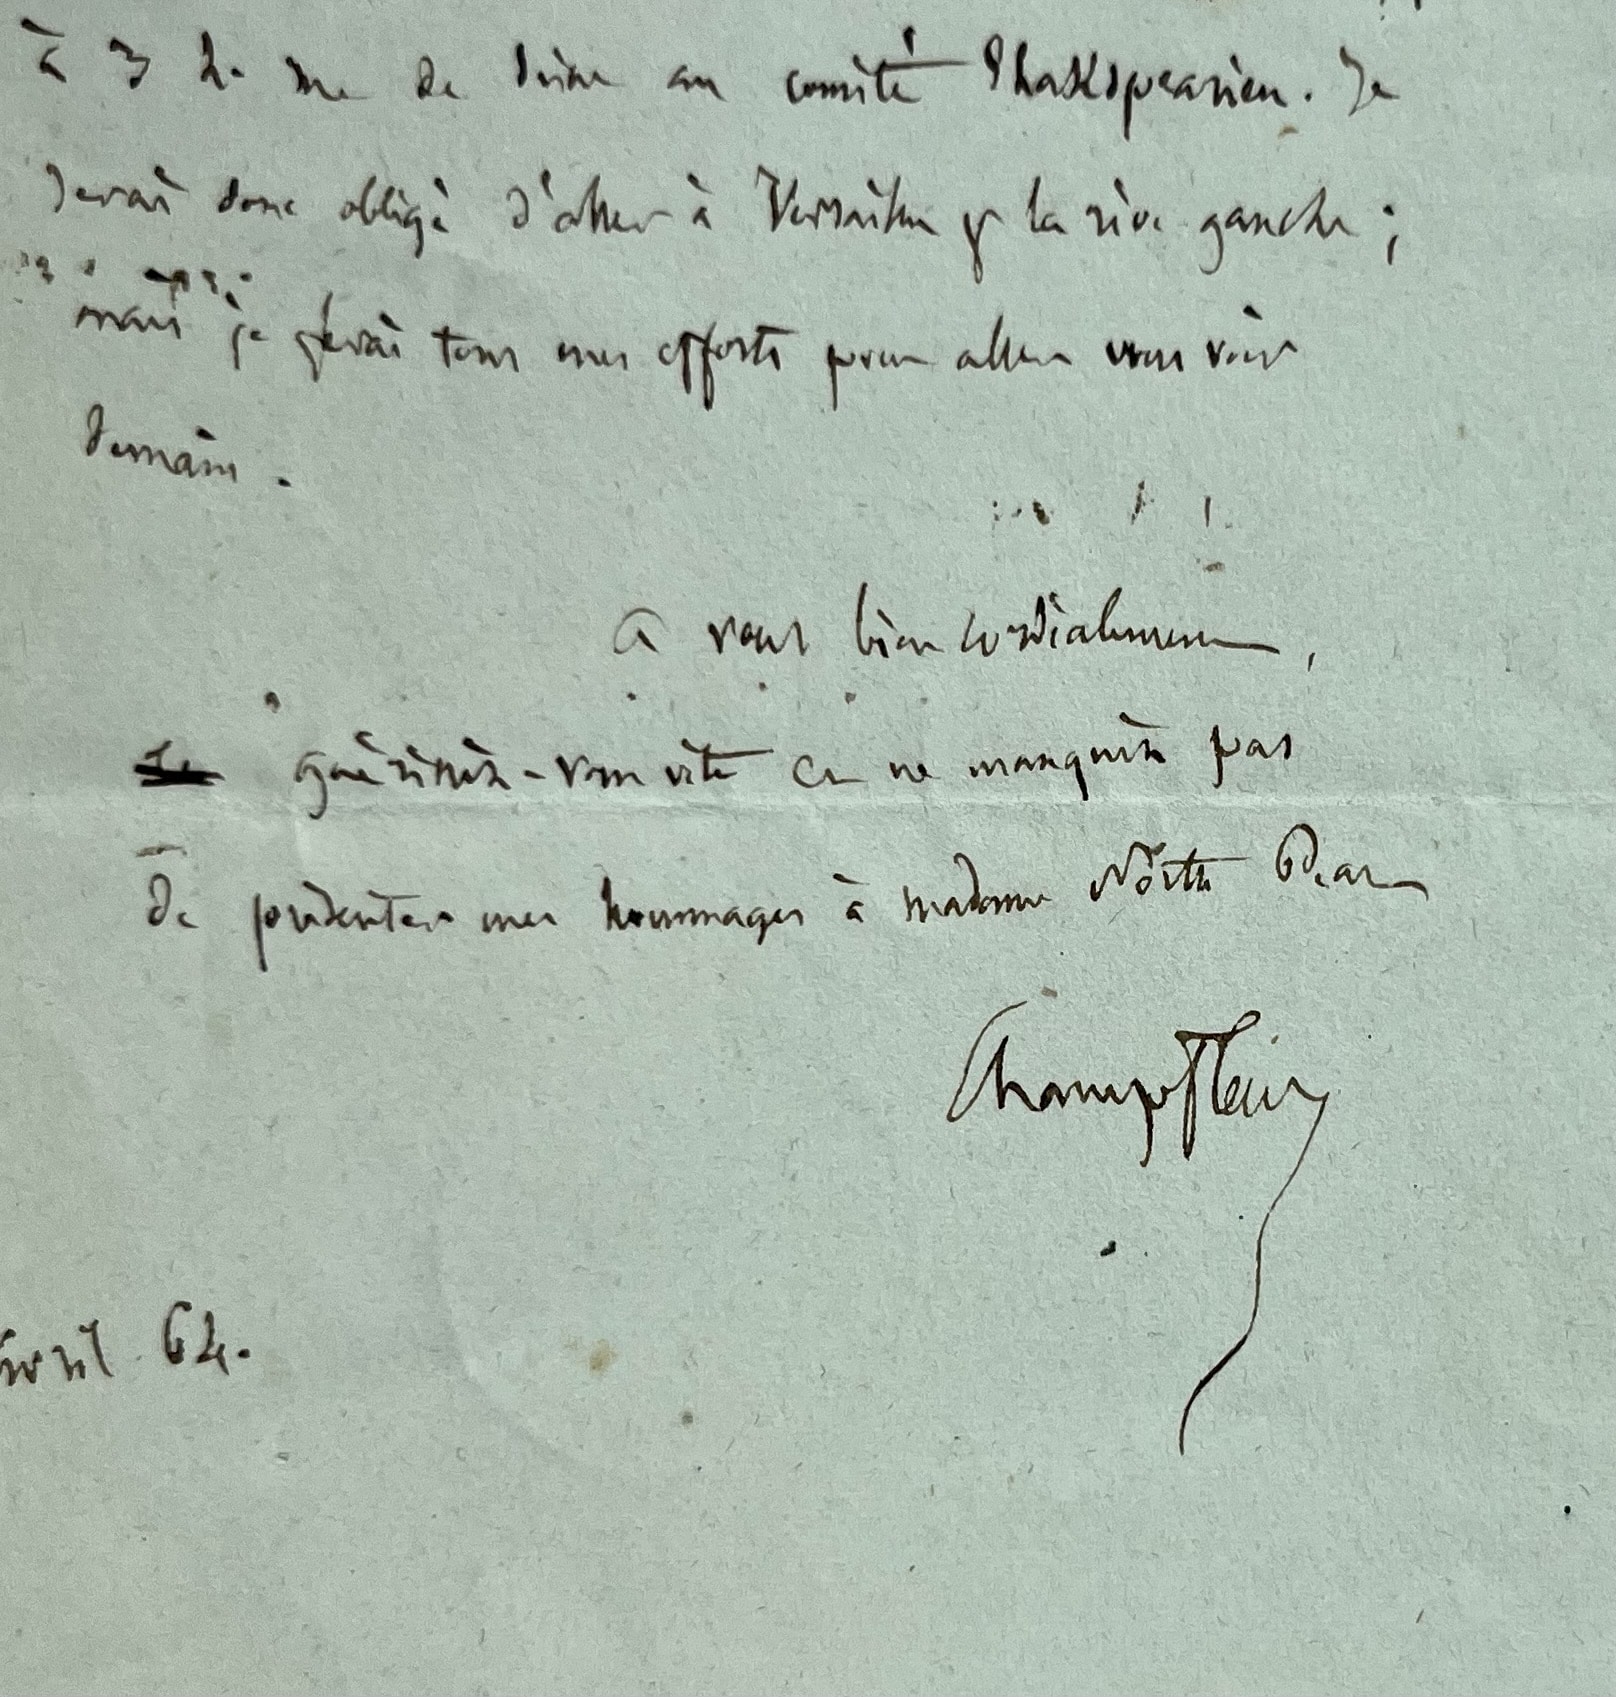 à 3 h. rue de Seine au comité Shakspearien. Je
serai donc obligé d'aller à Versailles pr la rive gauche ;
mais je ferai tous mes efforts pour aller vous voir
demain.
à vous bien cordialement,
guérissez-vous vite et ne manquez pas
de présenter mes hommages à madame North Peat
Champfleury
avril 64.